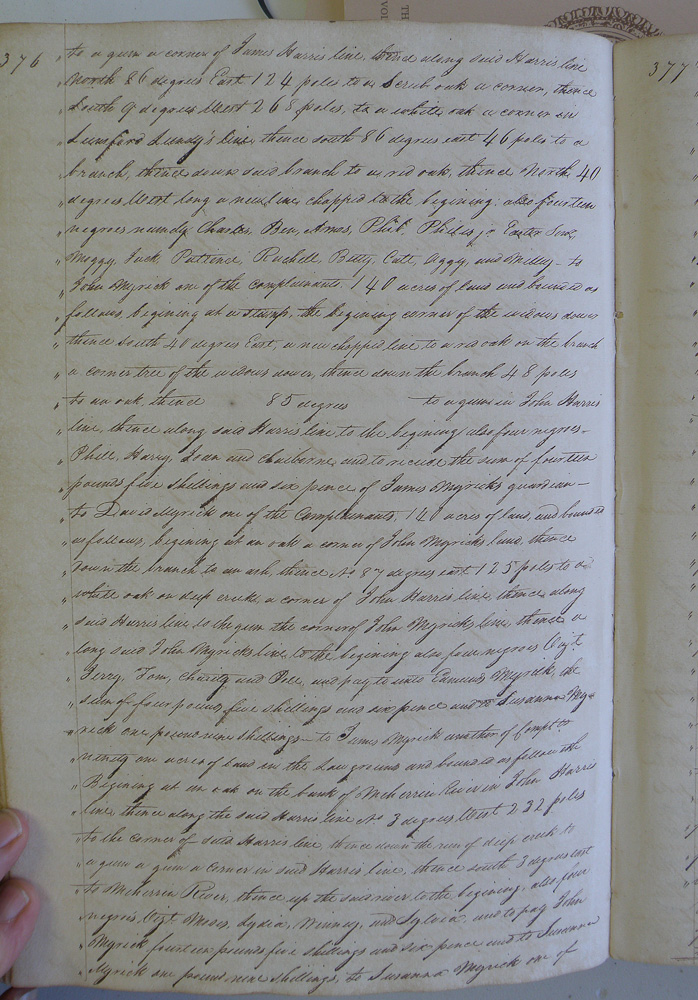 376
377
" to a gum a corner of James Harris line, thence along said Harris line
" North 86 degrees East 124 poles to a Scrub oak a corner, thence
" South 9 degrees West 268 poles, to a white oak a corner in
" Lundy's line, thence south 86 degrees east 46 poles to a
" branch, thence down said branch to a red oak, thence North 40
" degrees West long a new line chopped to the begining: also fourteen
" negroes namely Charles, Ben, Amos, Phil, Phillis jr Easter
" Moggy, Jack, Patience, Rachell, Betty, Catt, Aggy, and Milley - to
" John Myrick one of the complainants, 140 acres of land and bounded as
" follows, begining at a stump, the begining corner of the widows dower
" thence south 40 degrees East, a new chopped line to a red oak on the branch
" a corner tree of the widows dower, thence down the branch 48 poles
" to an oak, thence 85 degrees to a gum in John Harris
" line, thence along said Harris line to the begining also four negroes -
" Phill, Harry, Joan and Claiborne, and to receive the sum of fourteen
" pounds five shillings and six pence of James Myricks guardian -
" to David Myrick one of the Complainants, 140 acres of land, and bounded
" as follows, begining at an oak a corner of John Myricks land, thence
" down the branch to an ash, thence No. 87 degrees east 125 poles to a
" white oak on deep creek, a corner of John Harris line, thence along
" said Harris line to the gum the corner of John Myricks line, thence a
" long said John Myricks line to the begining also four negroes Vizt
" Jerry, Tom, Charity and Poll, and pay to unto Edmund Myrick, the
" sum of four pounds five shillings and six pence and to Susanna My=
" rick one pound nine shillings - to James Myrick another of Complts
" ninety one acres of land in the Low grounds and bounded as follow the
" Begining at an oak on the bank of Meherrin River in John Harris
" line, thence along the said Harris line No 3 degrees West 232 poles
" to the corner of said Harris line, thence down the run of deep creek to
" a gum a gum a corner in said Harris line, thence south 3 degrees east
" to Meherrin River, thence up the said river to the begining, also, four
" negroes, Vizt Moses, Lydia, Winney, and Sylvia, and to pay John
" Myrick fourteen pounds five shillings and six pence and to Susanna
" Myrick one pound nine shillings, to Susanna Myrick one of